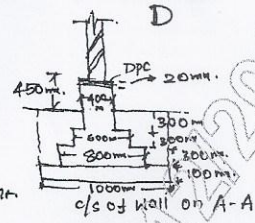 D
DPC
20mm.
450mm
400m
300m
600m
300m.
800m
300m.
100m.
1000m
c/s of Wall on A-A